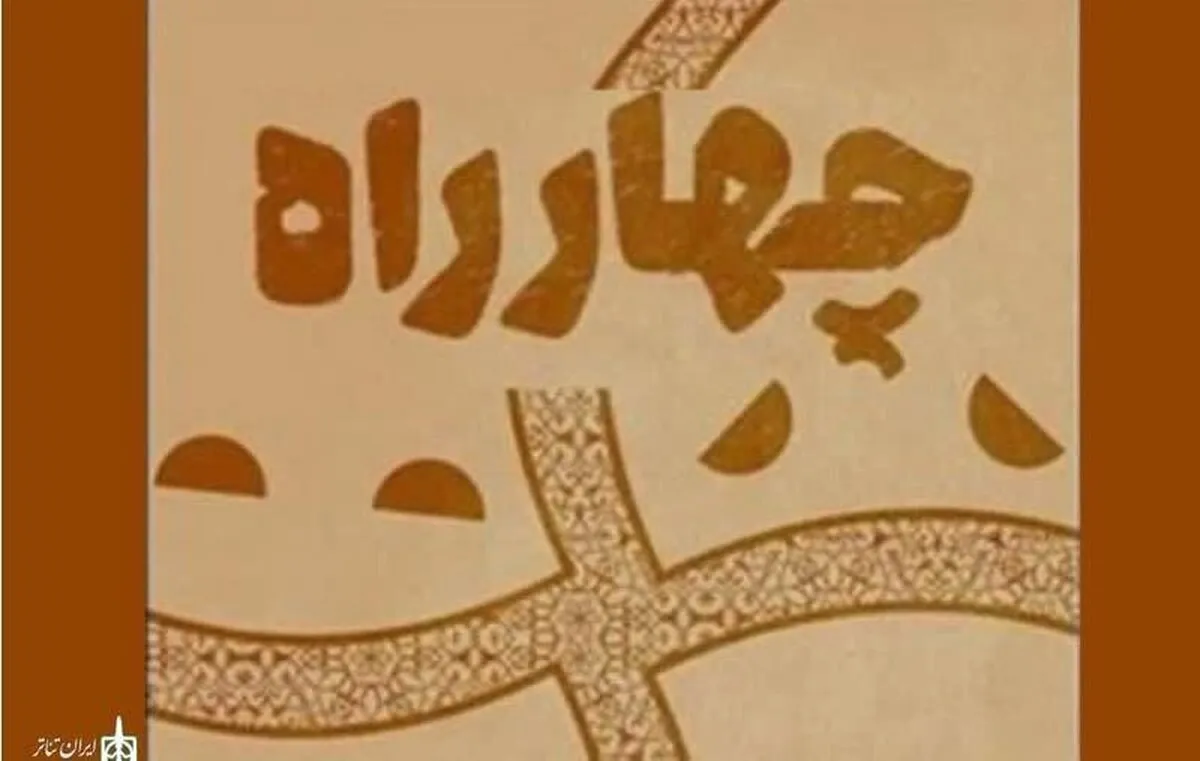 چهارراه
ایران تئاتر